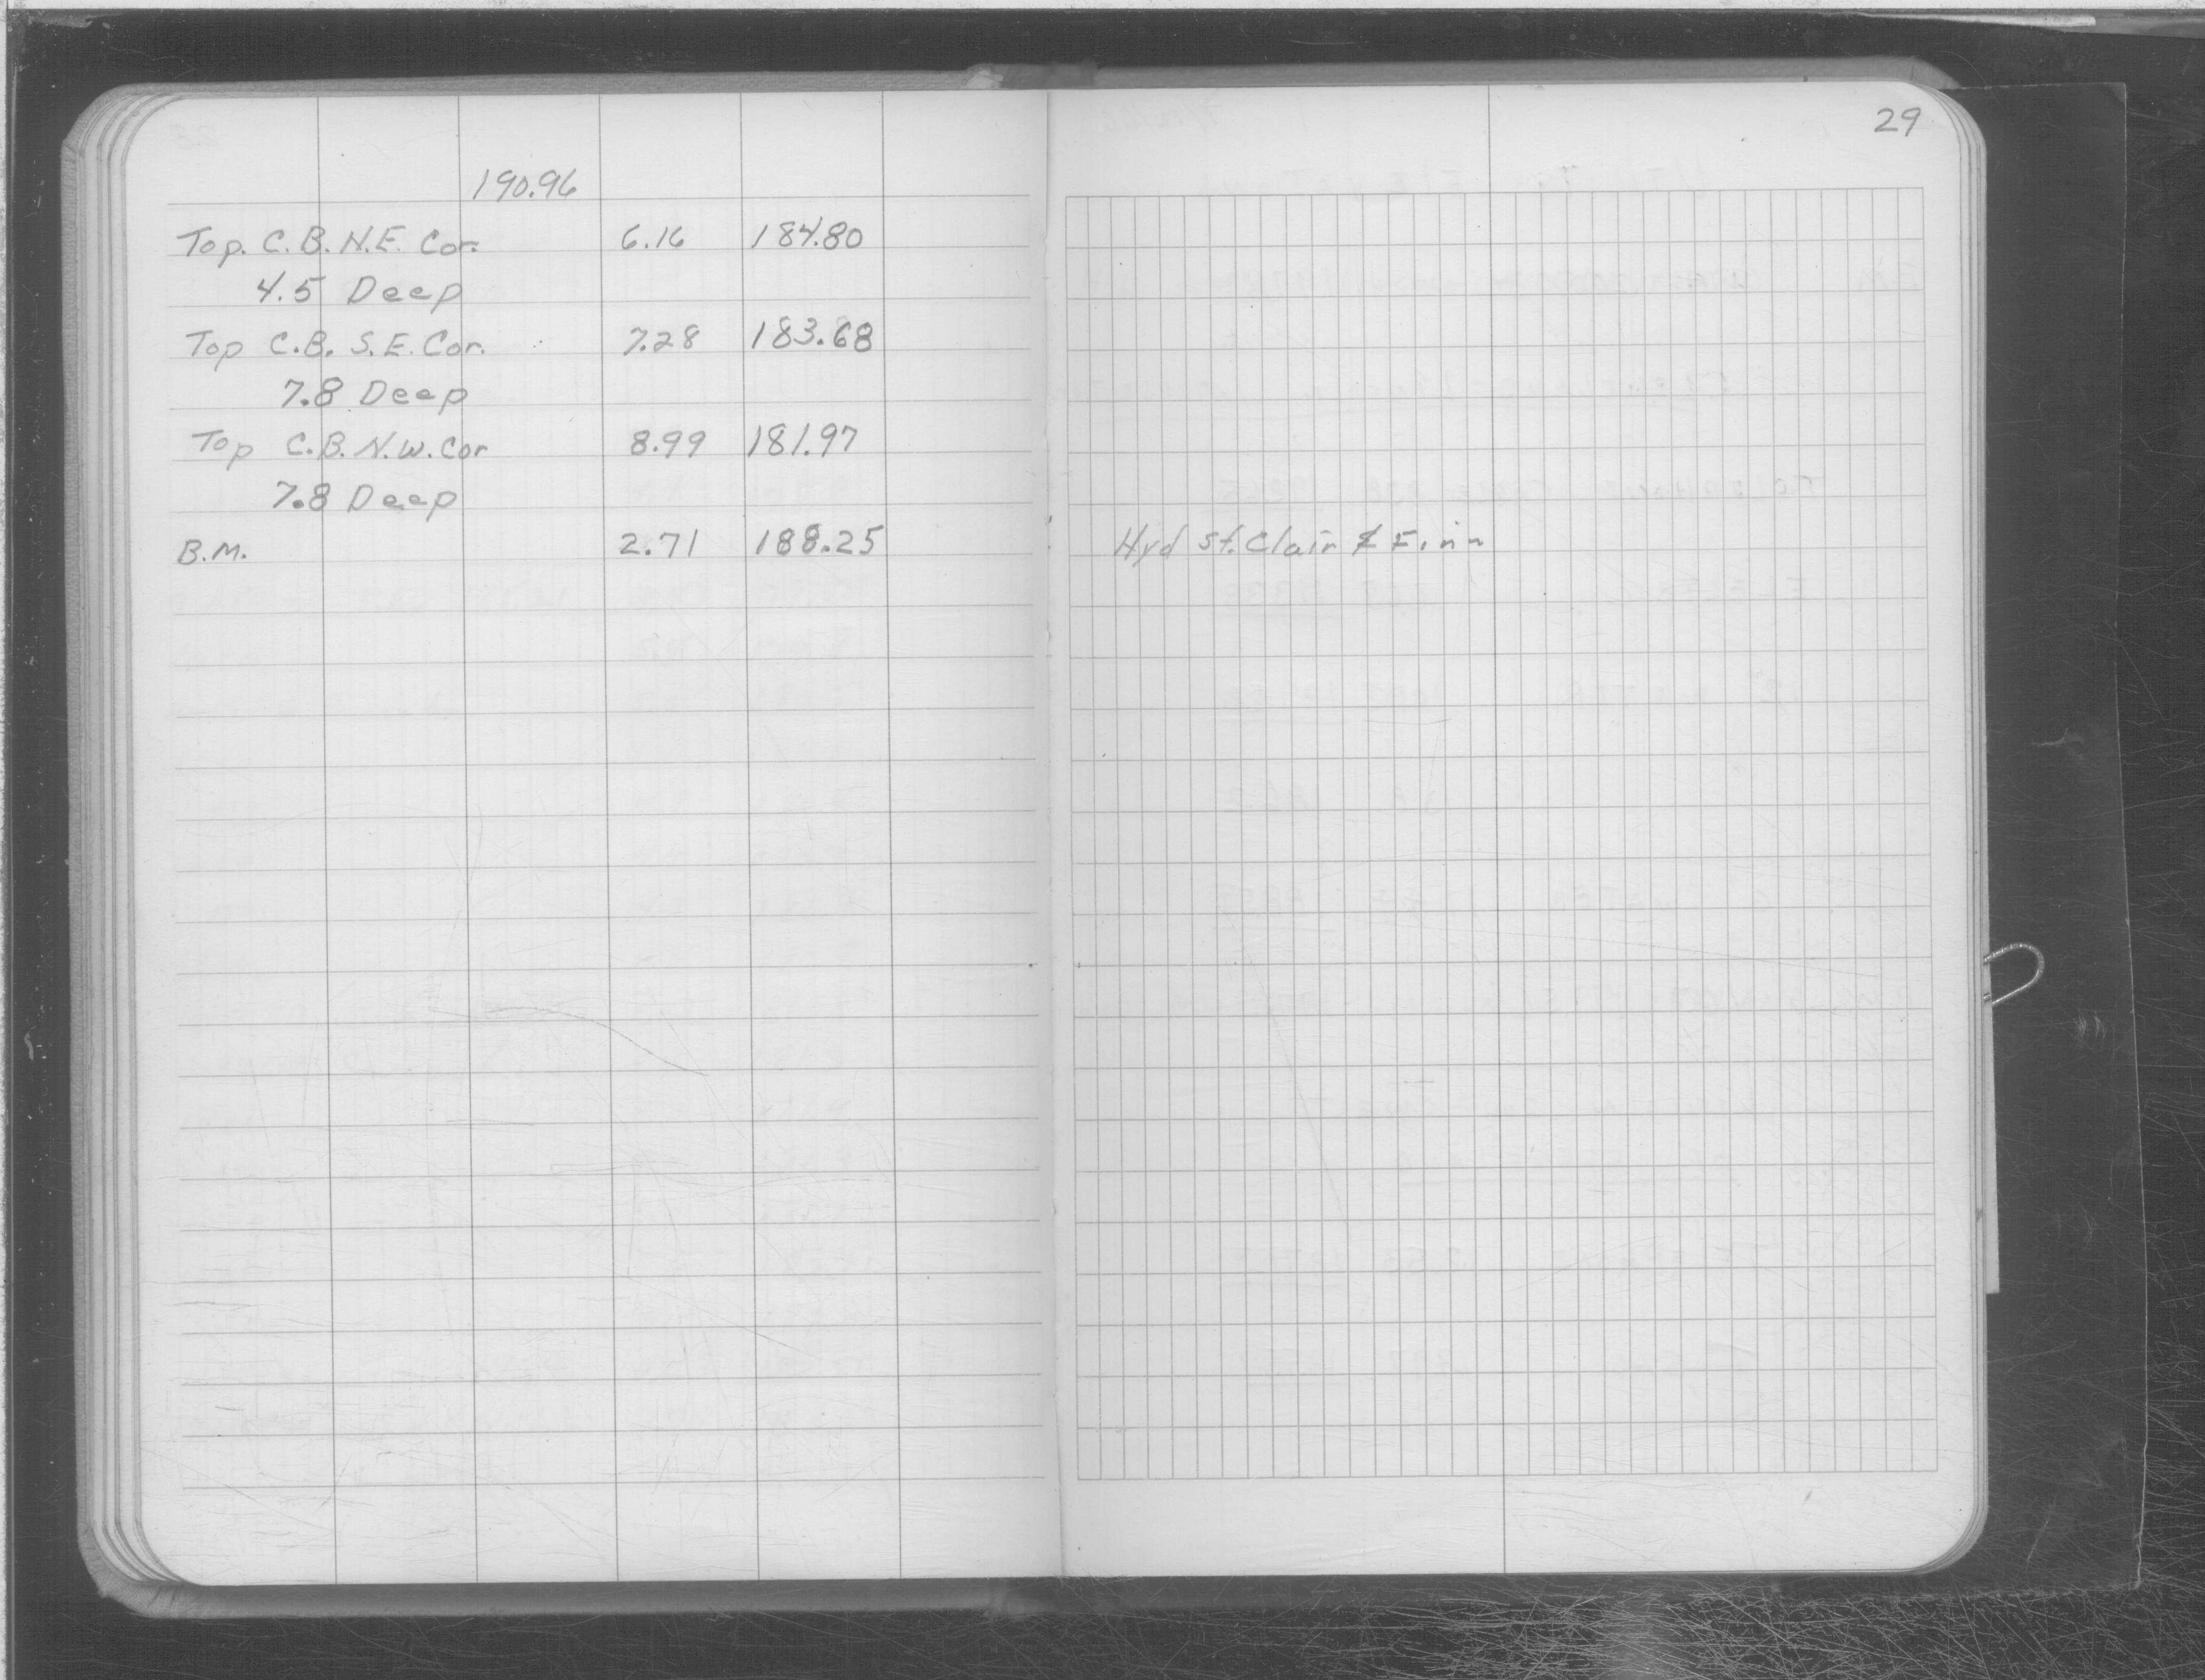 29
190.96
Top. C.B. N.E. Cor. 6.16 184.80
4.5 Deep
Top C.B. S.E. Cor. 7.28 183.68
7.8 Deep
Top C.B. N.W. Cor 8.99 181.97
7.8 Deep
B.M. 2.71 188.25 Hyd St. Clair & Finn